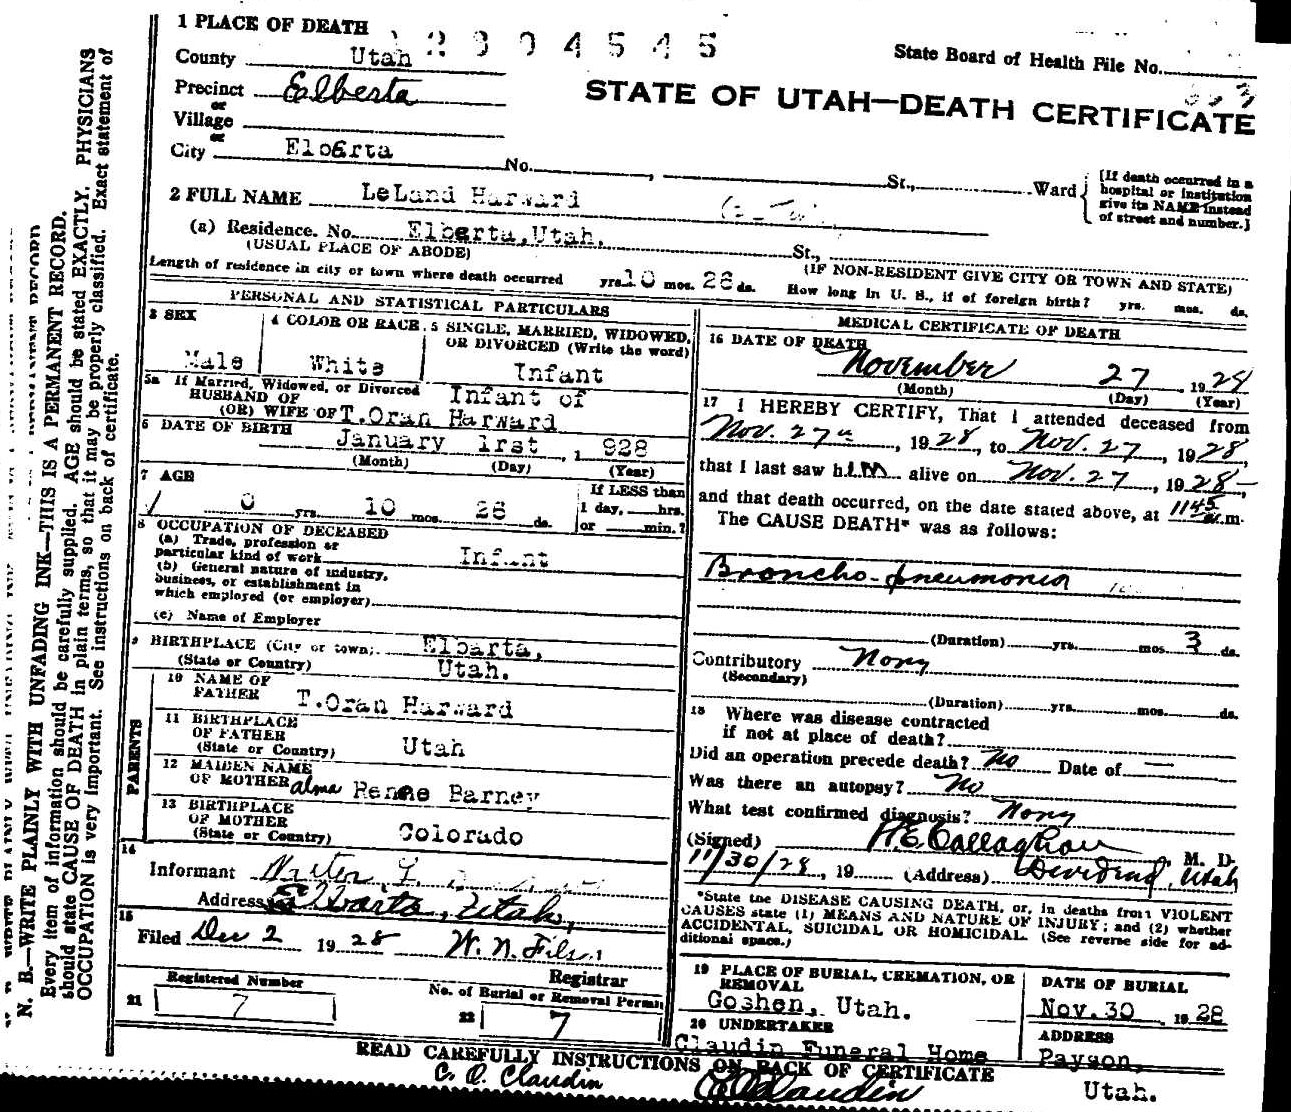 1 PLACE OF DEATH
12304545
State Board of Health File No.
County Utah
Precinct Elberta
or
Village
or
City Eloerta No. , St., Ward
STATE OF UTAH—DEATH CERTIFICATE
[If death occurred in a hospital or institution give its NAME instead of street and number.]
2 FULL NAME LeLand Harward
(a) Residence. No. Elberta,Utah. St.,
(USUAL PLACE OF ABODE)
(IF NON-RESIDENT GIVE CITY OR TOWN AND STATE)
Length of residence in city or town where death occurred yrs. 10 mos. 26 ds. How long in U. S., if of foreign birth? yrs. mos. ds.
PERSONAL AND STATISTICAL PARTICULARS
3 SEX
Male
4 COLOR OR RACE
White
5 SINGLE, MARRIED, WIDOWED, OR DIVORCED (Write the word)
Infant
5a If Married, Widowed, or Divorced
HUSBAND OF
(OR) WIFE OF
Infant of
T.Oran Harward
6 DATE OF BIRTH
January 1rst , 1 928
(Month) (Day) (Year)
7 AGE
0 yrs. 10 mos. 26 ds.
If LESS than
1 day, hrs.
or min.?
8 OCCUPATION OF DECEASED
(a) Trade, profession or
particular kind of work Infant
(b) General nature of industry,
business, or establishment in
which employed (or employer)
(c) Name of Employer
9 BIRTHPLACE (City or town). Elbarta,
(State or Country) Utah.
PARENTS
10 NAME OF
FATHER T.Oran Harward
11 BIRTHPLACE
OF FATHER
(State or Country) Utah
12 MAIDEN NAME
OF MOTHER alma Renae Barney
13 BIRTHPLACE
OF MOTHER
(State or Country) Colorado
14
Informant
Address Elbarta, Utah,
15
Filed Dec 2 1928 W. N.
Registrar
Registered Number
21 7
No. of Burial or Removal Permit
22 7
MEDICAL CERTIFICATE OF DEATH
16 DATE OF DEATH
November 27 , 1928
(Month) (Day) (Year)
17 I HEREBY CERTIFY, That I attended deceased from
Nov. 27th , 1928, to Nov. 27 , 1928,
that I last saw him alive on Nov. 27 , 1928
and that death occurred, on the date stated above, at 1145 m.
The CAUSE DEATH* was as follows:
Broncho-pneumonia
(Duration) yrs. mos. 3 ds.
Contributory None
(Secondary)
(Duration) yrs. mos. ds.
18 Where was disease contracted
if not at place of death?
Did an operation precede death? No Date of —
Was there an autopsy? No
What test confirmed diagnosis? None
(Signed) H E Callaghan , M. D.
11/30/28, 19 (Address) Dividend, Utah
*State the DISEASE CAUSING DEATH, or, in deaths from VIOLENT
CAUSES state (1) MEANS AND NATURE OF INJURY; and (2) whether
ACCIDENTAL, SUICIDAL OR HOMICIDAL. (See reverse side for ad-
ditional space.)
19 PLACE OF BURIAL, CREMATION, OR
REMOVAL
Goshen, Utah.
DATE OF BURIAL
Nov. 30 , 1928
20 UNDERTAKER
Claudin Funeral Home
ADDRESS
Payson,
Utah.
READ CAREFULLY INSTRUCTIONS ON BACK OF CERTIFICATE
C. O. Claudin
C O Claudin
N. B.—WRITE PLAINLY WITH UNFADING INK—THIS IS A PERMANENT RECORD.
Every item of information should be carefully supplied. AGE should be stated EXACTLY. PHYSICIANS
should state CAUSE OF DEATH in plain terms, so that it may be properly classified. Exact statement of
OCCUPATION is very important. See instructions on back of certificate.